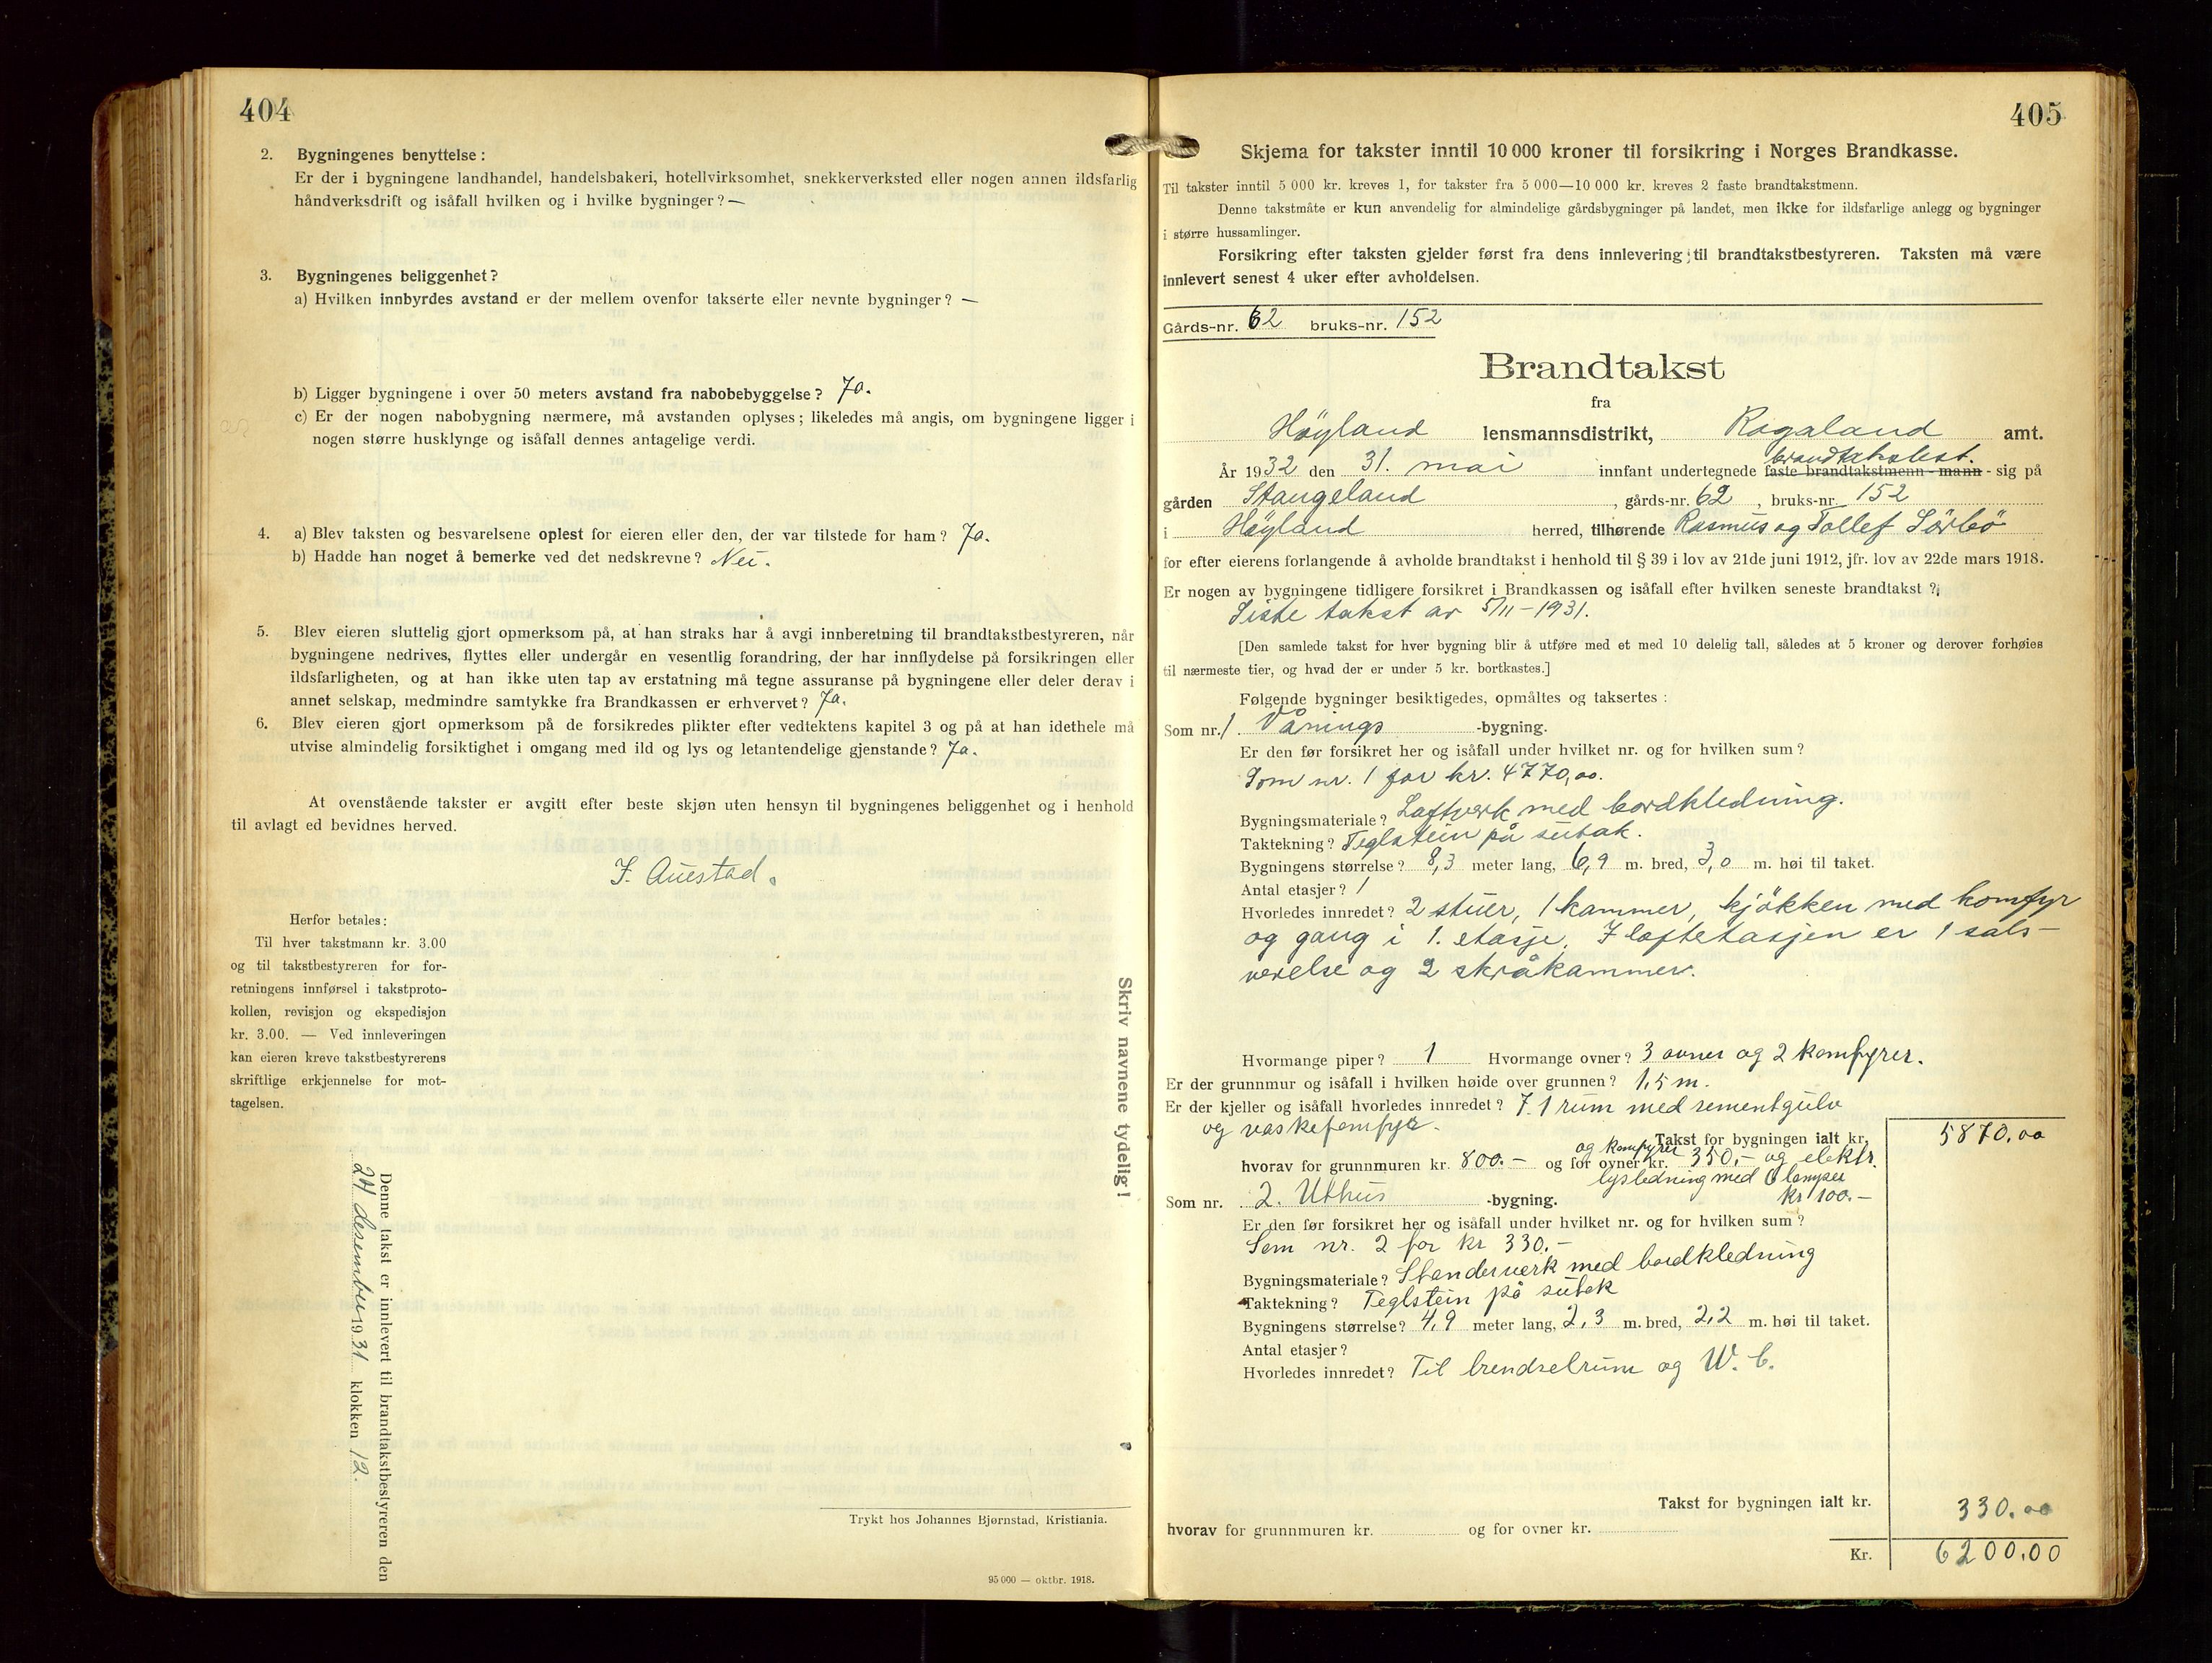 404
2. Bygningenes benyttelse:
Er der i bygningene landhandel, handelsbakeri, hotellvirksomhet, snekkerverksted eller nogen annen ildsfarlig
håndverksdrift og isåfall hvilken og i hvilke bygninger? —
3. Bygningenes beliggenhet?
a) Hvilken innbyrdes avstand er der mellem ovenfor takserte eller nevnte bygninger? —
b) Ligger bygningene i over 50 meters avstand fra nabobebyggelse? Ja.
c) Er der nogen nabobygning nærmere, må avstanden oplyses; likeledes må angis, om bygningene ligger i
nogen større husklynge og isåfall dennes antagelige verdi.
4. a) Blev taksten og besvarelsene oplest for eieren eller den, der var tilstede for ham? Ja.
b) Hadde han noget å bemerke ved det nedskrevne? Nei.
5. Blev eieren sluttelig gjort opmerksom på, at han straks har å avgi innberetning til brandtakstbestyreren, når
bygningene nedrives, flyttes eller undergår en vesentlig forandring, der har innflydelse på forsikringen eller
ildsfarligheten, og at han ikke uten tap av erstatning må tegne assuranse på bygningene eller deler derav i
annet selskap, medmindre samtykke fra Brandkassen er erhvervet? Ja.
6. Blev eieren gjort opmerksom på de forsikredes plikter efter vedtektens kapitel 3 og på at han idethele må
utvise almindelig forsiktighet i omgang med ild og lys og letantendelige gjenstande? Ja.
At ovenstående takster er avgitt efter beste skjøn uten hensyn til bygningenes beliggenhet og i henhold
til avlagt ed bevidnes herved.
J. Auestad.
Herfor betales:
Til hver takstmann kr. 3.00
og til takstbestyreren for for-
retningens innførsel i takstproto-
kollen, revisjon og ekspedisjon
kr. 3.00. — Ved innleveringen
kan eieren kreve takstbestyrerens
skriftlige erkjennelse for mot-
tagelsen.
Denne takst er innlevert til brandtakstbestyreren den
24 desember 1931 klokken 12.
Skriv navnene tydelig!
Trykt hos Johannes Bjørnstad, Kristiania.
95 000 — oktbr. 1918.
405
Skjema for takster inntil 10 000 kroner til forsikring i Norges Brandkasse.
Til takster inntil 5 000 kr. kreves 1, for takster fra 5 000—10 000 kr. kreves 2 faste brandtakstmenn.
Denne takstmåte er kun anvendelig for almindelige gårdsbygninger på landet, men ikke for ildsfarlige anlegg og bygninger
i større hussamlinger.
Forsikring efter taksten gjelder først fra dens innlevering til brandtakstbestyreren. Taksten må være
innlevert senest 4 uker efter avholdelsen.
Gårds-nr. 62 bruks-nr. 152
Brandtakst
fra
Høyland lensmannsdistrikt, Rogaland amt.
brandtakstbest.
År 1932 den 31. mai innfant undertegnede faste brandtakstmenn - mann - sig på
gården Stangeland, gårds-nr. 62, bruks-nr. 152
i Høyland herred, tilhørende Rasmus og Tollef Sörbö
for efter eierens forlangende å avholde brandtakst i henhold til § 39 i lov av 21de juni 1912, jfr. lov av 22de mars 1918.
Er nogen av bygningene tidligere forsikret i Brandkassen og isåfall efter hvilken seneste brandtakst?
Siste takst av 5/11-1931.
[Den samlede takst for hver bygning blir å utføre med et med 10 delelig tall, således at 5 kroner og derover forhøies
til nærmeste tier, og hvad der er under 5 kr. bortkastes.]
Følgende bygninger besiktigedes, opmåltes og taksertes:
Som nr. 1 Vånings-bygning.
Er den før forsikret her og isåfall under hvilket nr. og for hvilken sum?
Som nr. 1 for kr. 4770,00.
Bygningsmateriale? Laftverk med bordkledning.
Taktekning? Teglstein på sutak.
Bygningens størrelse? 8,3 meter lang, 6,9 m. bred, 3,0 m. høi til taket.
Antal etasjer? 1
Hvorledes innredet? 2 stuer, 1 kammer, kjökken med komfyr
og gang i 1. etasje. I loftetasjen er 1 sals-
verelse og 2 skråkammer.
Hvormange piper? 1 Hvormange ovner? 3 ovner og 2 komfyrer.
Er der grunnmur og isåfall i hvilken høide over grunnen? 1,5 m.
Er der kjeller og isåfall hvorledes innredet? J. 1 rum med sementgulv
og vaskekomfyr.
Takst for bygningen ialt kr. 5870.00
og komfyrer
hvorav for grunnmuren kr. 800.- og for ovner kr. 350,- og elektr.
lysledning med 6 lamper
kr 100.-
Som nr. 2. Uthus-bygning.
Er den før forsikret her og isåfall under hvilket nr. og for hvilken sum?
Som nr. 2 for kr 330.-
Bygningsmateriale? Standerverk med bordkledning
Taktekning? Teglstein på sutak
Bygningens størrelse? 4,9 meter lang, 2,3 m. bred, 2,2 m. høi til taket.
Antal etasjer?
Hvorledes innredet? Til brendselrum og W. C.
Takst for bygningen ialt kr. 330.00
hvorav for grunnmuren kr. og for ovner kr.
Kr. 6200.00